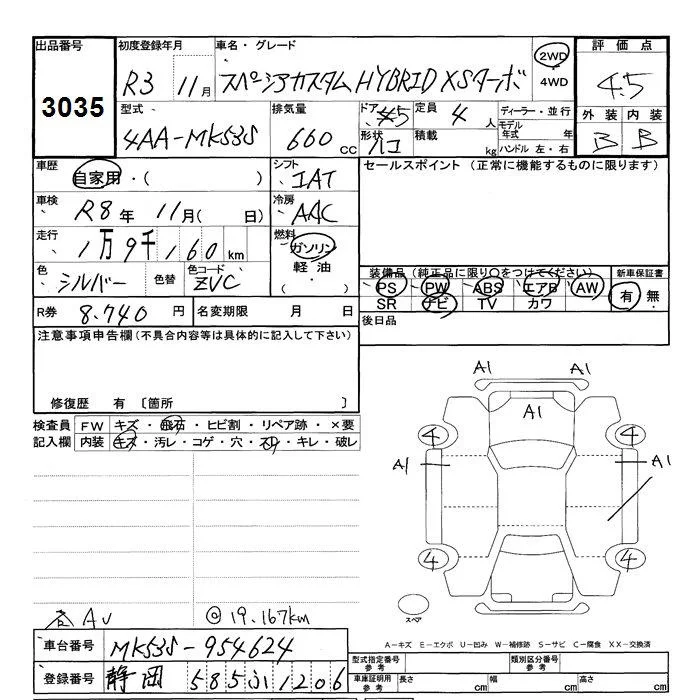 出品番号 初度登録年月 車名・グレード 評価点
3035 R3 11月 スペーシアカスタム HYBRID XSターボ 2WD 4WD 4.5
型式 排気量 ドア 定員 ディーラー・並行 外装 内装
4AA-MK53S 660cc 5 4人 モデル年式 年 B B
形状 ハコ 積載 kg ハンドル 左・右
車歴 自家用・( ) シフト IAT セールスポイント (正常に機能するものに限ります)
車検 R8年 11月( 日) 冷房 AAC
走行 1万9千160km 燃料 ガソリン 軽油・( )
色 シルバー 色替 色コード ZVC 装備品 (純正品に限り○をつけてください) 新車保証書
PS PW ABS エアB AW 有 無
R券 8.740円 名変期限 月 日 SR ナビ TV カワ
注意事項申告欄(不具合内容等は具体的に記入して下さい) 後日品
修復歴 有 〔箇所 〕
検査員 FW キズ・飛石・ヒビ割・リペア跡・×要
記入欄 内装 キズ・汚レ・コゲ・穴・スレ・キレ・破レ
A1 A1
A1
4 4
A1 A1
4 4
スペア
各AU @19.167km
A-キズ E-エクボ U-凹み W-補修跡 S-サビ C-腐食 XX-交換済
車台番号 MK53S-954624 型式指定番号 参考 類別区分番号 参考
登録番号 静岡 585ふ1206 車庫証明用 参考 長さ cm 幅 cm 高さ cm